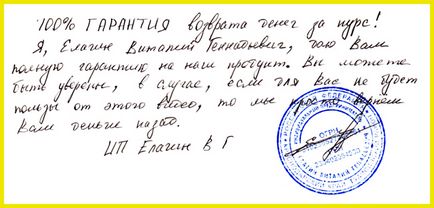 100% ГАРАНТИЯ возврата денег за курс!
Я, Елагин Виталий Геннадьевич, даю Вам
полную гарантию на наш продукт. Вы можете
быть уверены, в случае, если для Вас не будет
пользы от этого Видео, то мы просто вернем
Вам деньги назад.
ИП Елагин В Г
ОГРН